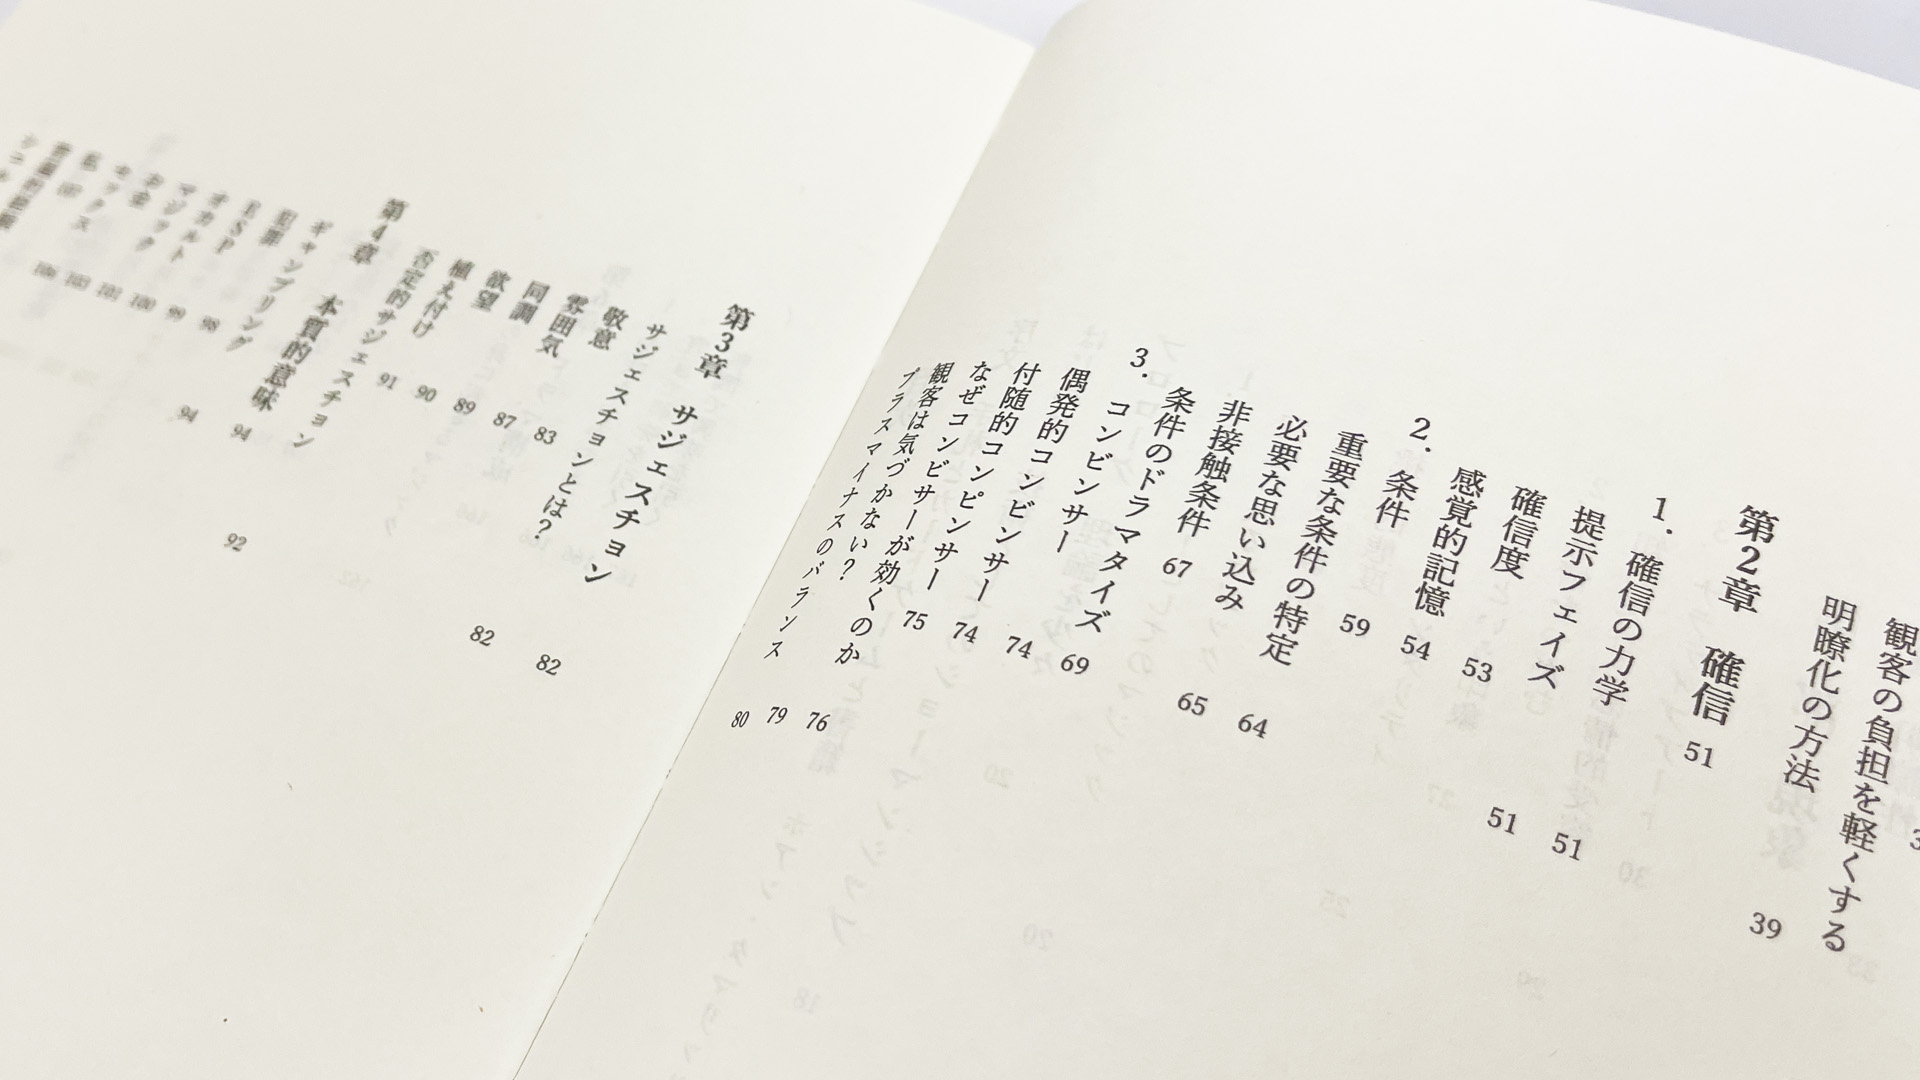 観客の負担を軽くする
明瞭化の方法 39
第2章 確信 51
1. 確信の力学 51
提示フェイズ 51
確信度 53
感覚的記憶 54
2. 条件 59
重要な条件の特定 64
必要な思い込み 65
非接触条件 67
条件のドラマタイズ 69
3. コンビンサー 74
偶発的コンビンサー 74
付随的コンピンサー 75
なぜコンビサーが効くのか 76
観客は気づかない? 79
プラスマイナスのバランス 80
第3章 サジェスチョン 82
サジェスチョンとは? 82
敬意 83
雰囲気 87
同調 89
欲望 90
植え付け 91
否定的サジェスチョン 92
第4章 本質的意味 94
ギャンブリング 94
犯罪 98
ESP 99
オカルト 100
マジック
お金
セックス